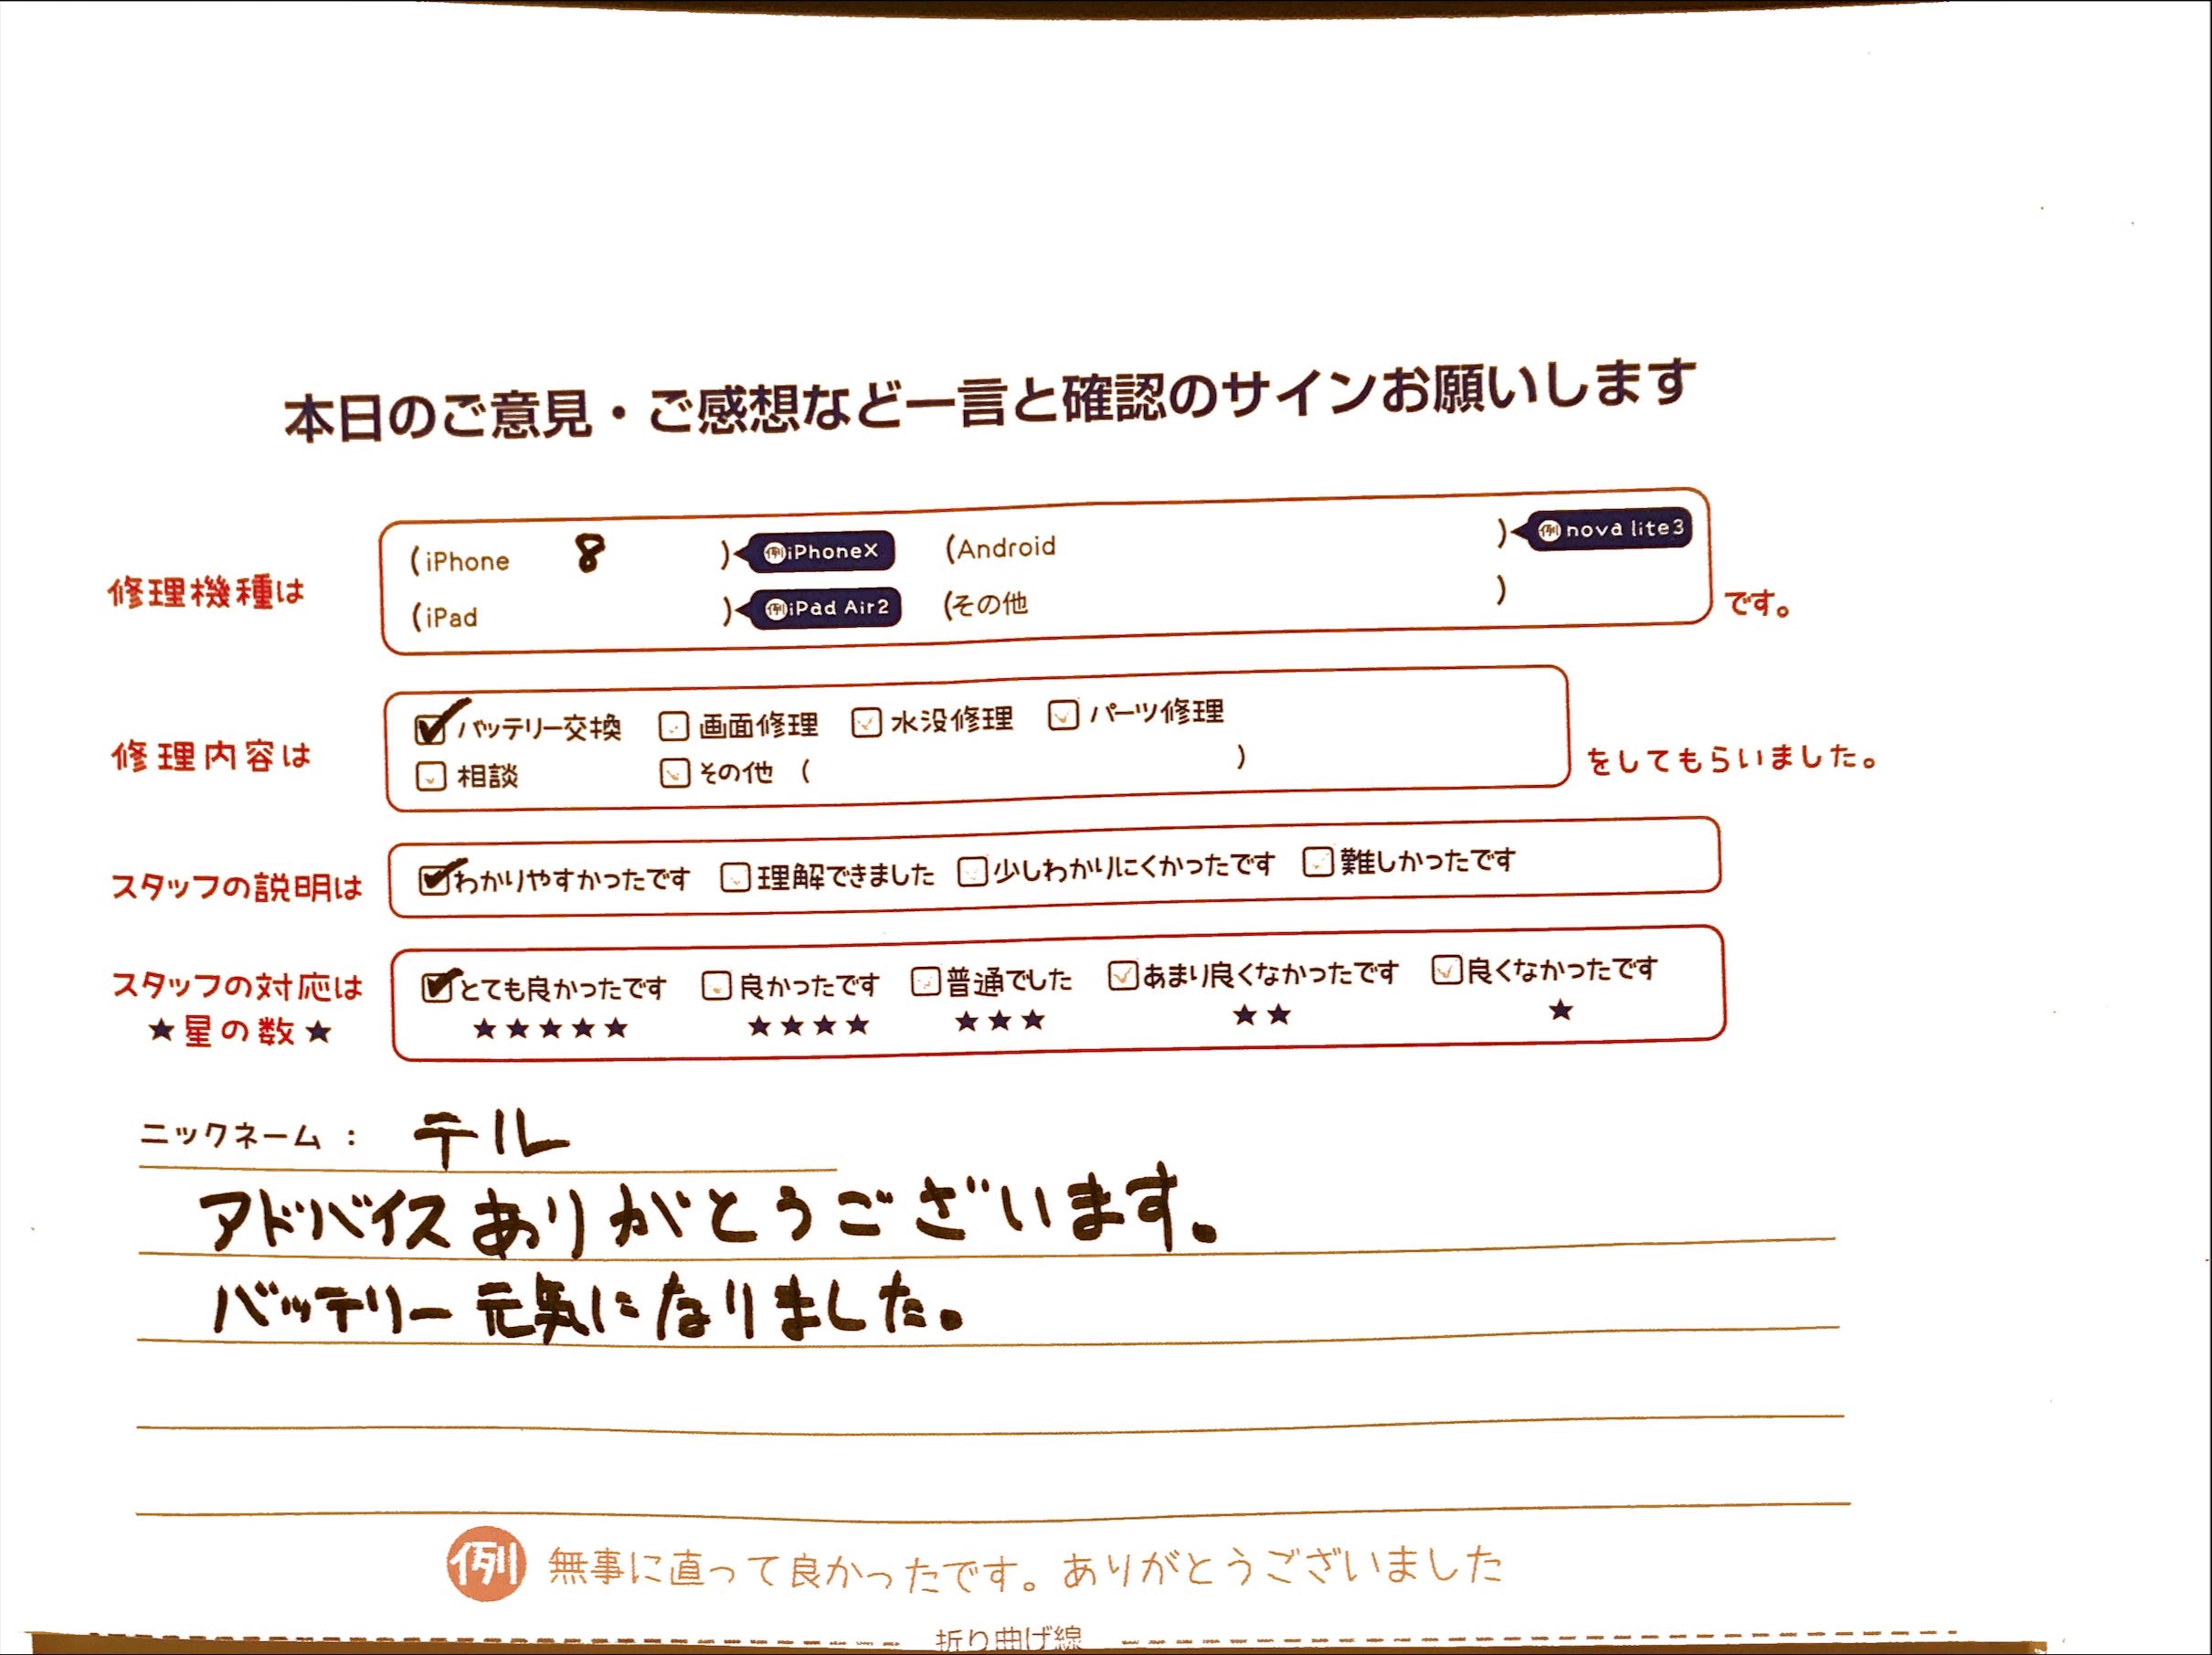 本日のご意見・ご感想など一言と確認のサインお願いします
修理機種は
(iPhone 8 ) 例iPhoneX (Android ) 例nova lite3
(iPad ) 例iPad Air2 (その他 )
です。
修理内容は
バッテリー交換 画面修理 水没修理 パーツ修理
相談 その他 ( )
をしてもらいました。
スタッフの説明は
わかりやすかったです 理解できました 少しわかりにくかったです 難しかったです
スタッフの対応は
★星の数★
とても良かったです 良かったです 普通でした あまり良くなかったです 良くなかったです
★★★★★ ★★★★ ★★★ ★★ ★
ニックネーム： テル
アドバイスありがとうございます。
バッテリー元気になりました。
例 無事に直って良かったです。ありがとうございました
折り曲げ線